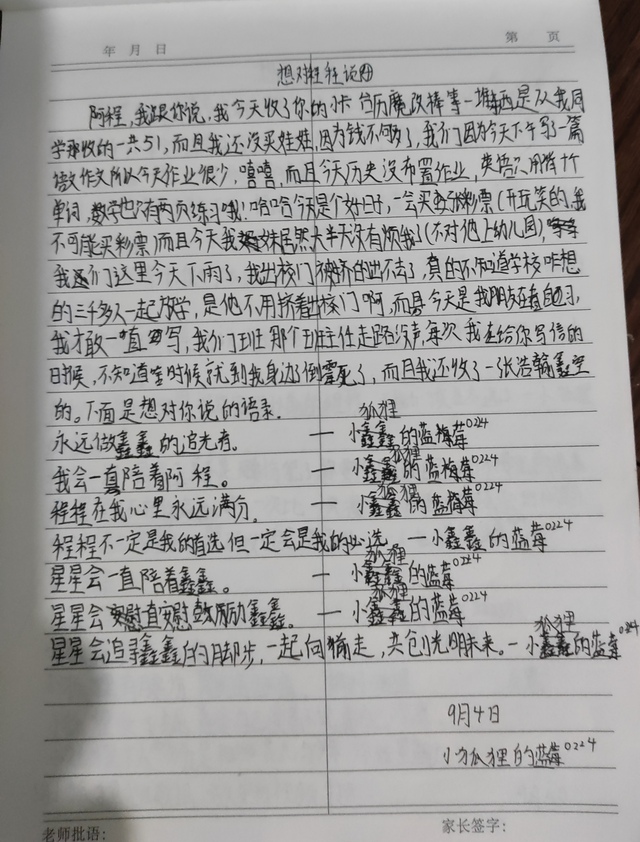 年 月 日 第 页
想对程程说④
阿程，我跟你说，我今天收了你的小卡 台历魔改棒等一堆东西是从我同
学那收的一共51，而且我还没买娃娃，因为钱不够了，我们因为今天下午写了一篇
语文作文所以今天作业很少，嘻嘻，而且今天历史没布置作业，英语只用背十个
单词，数学也只有两页练习哦！哈哈今天是个好日子，一会买彩票（开玩笑的，我
不可能买彩票）而且今天我妹居然大半天没有烦我！（不对他上幼儿园），
我们这里今天下雨了，我出校门被挤的出不去了，真的不知道学校咋想
的三千多人一起放学，是他不用挤着出校门啊，而且今天是我朋友看自习，
我才敢一直写，我们班那个班主任走路没声，每次我在给你写信的
时候，不知道啥时候就到我身边了倒霉死了，而且我还收了一张浩瀚鑫空
的。下面是想对你说的语录。
永远做鑫鑫的追光者。 — 小狐狸的蓝莓0224
我会一直陪着阿程。 — 小狐狸的蓝莓0224
程程在我心里永远满分。 — 小狐狸的蓝莓0224
程程不一定是我的首选但一定会是我的必选 — 小狐狸的蓝莓0224
星星会一直陪着鑫鑫。 — 小狐狸的蓝莓0224
星星会安慰鼓励鑫鑫。 — 小狐狸的蓝莓0224
星星会追寻鑫鑫的脚步，一起向前走，共创光明未来。— 小狐狸的蓝莓0224
9月4日
小狐狸的蓝莓0224
老师批语： 家长签字：